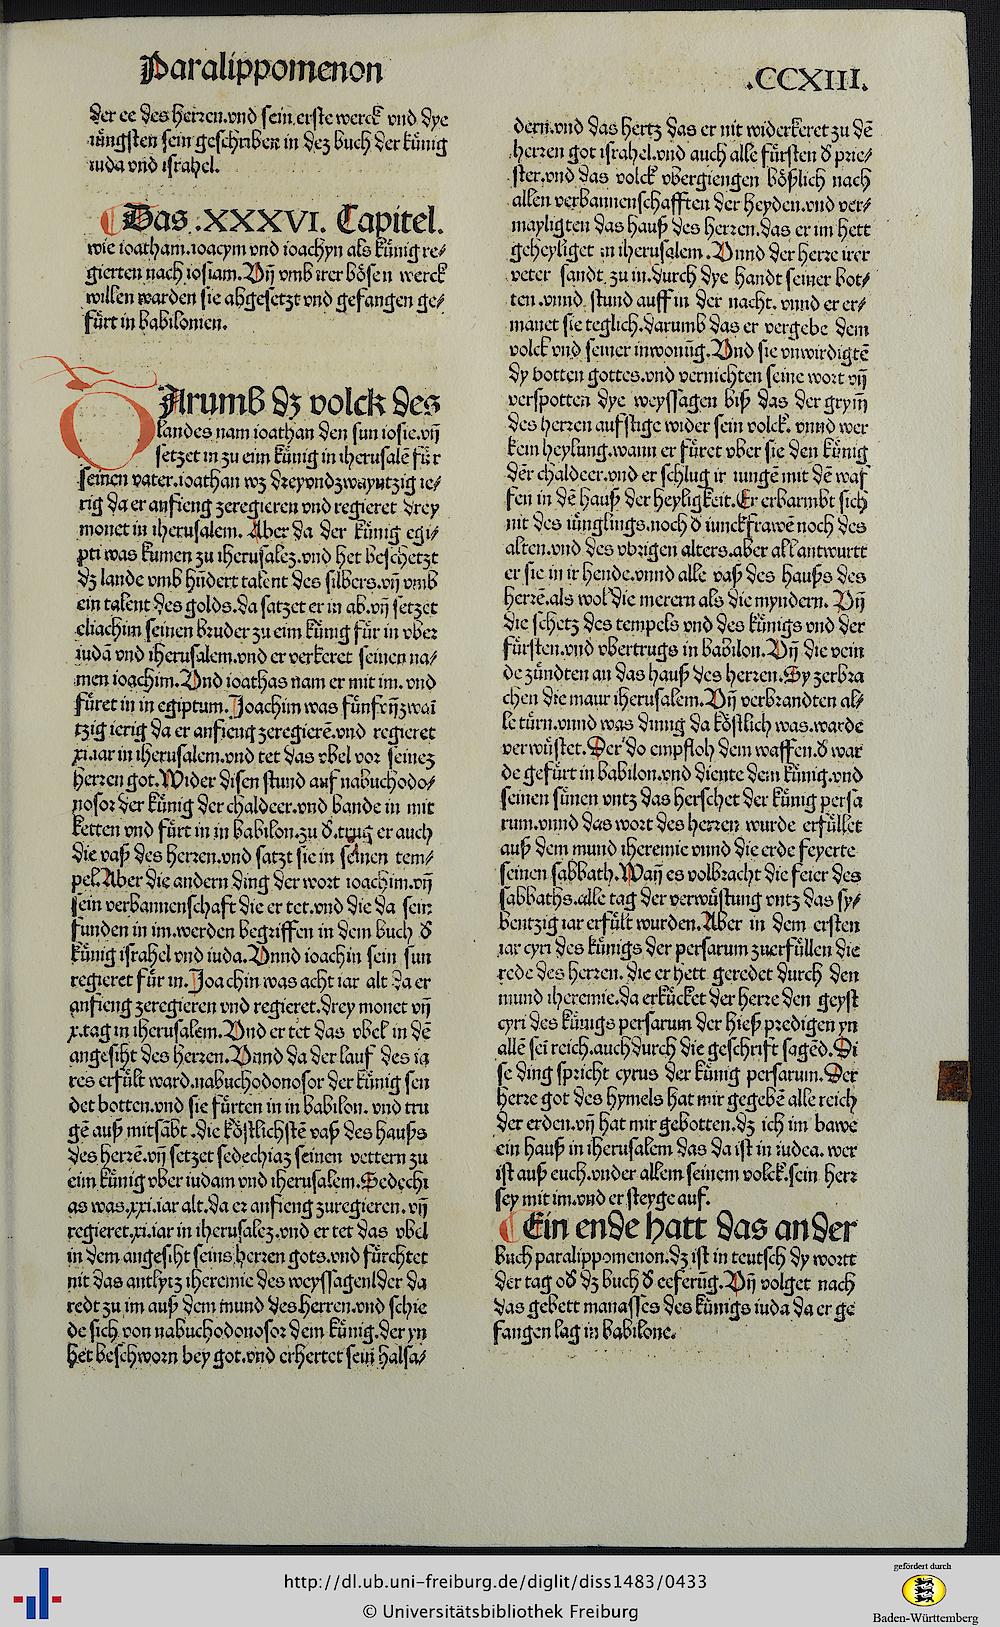 Paralippomenon
.CCXIII.
der ee des herren.vnd sein erste werck vnd dye
iu̓ngsten sein geschriben in dez buch der ku̓nig
iuda vnd israhel.
Das .XXXVI. Capitel.
wie ioatham.ioacym vnd ioachyn als ku̓nig re⸗
gierten nach iosiam.Vn̄ vmb irer bo̓sen werck
willen warden sie abgesetzt vnd gefangen ge⸗
fu̓rt in babilonien.
DArumb dz volck des
landes nam ioathan den sun iosie.vn̄
setzet in zu eim ku̓nig in iherusalē fu̓r
seinen vater.ioathan wz dreyvndzwayntzig ie⸗
rig da er anfieng zeregieren vnd regieret drey
monet in iherusalem. Aber da der ku̓nig egi⸗
pti was kumen zu iherusalez.vnd het beschetzt
dz lande vmb hūdert talent des silbers.vn̄ vmb
ein talent des golds.da satzet er in ab.vn̄ setzet
eliachim seinen bruder zu eim ku̓nig fu̓r in vber
iudā vnd iherusalem.vnd er verkeret seinen na⸗
men ioachim.Vnd ioathas nam er mit im. vnd
fu̓ret in in egiptum. Joachim was fu̓nfvn̄zwaī
tzig ierig da er anfieng zeregierē.vnd regieret
xi.iar in iherusalem.vnd tet das vbel vor seinez
herren got.Wider disen stund auf nabuchodo⸗
nosor der ku̓nig der chaldeer.vnd bande in mit
ketten vnd fu̓rt in in babilon.zu d̓.trug er auch
die vaß des herren.vnd satzt sie in seinen tem⸗
pel.Aber die andern ding der wort ioachim.vn̄
sein verbannenschaft die er tet.vnd die da sein
funden in im.werden begriffen in dem buch d̓
ku̓nig israhel vnd iuda.Vnnd ioachin sein sun
regieret fu̓r in. Joachin was acht iar alt da er
anfieng zeregieren vnd regieret.drey monet vn̄
x.tag in iherusalem.Vnd er tet das vbel in dē
angesiht des herren.Vnnd da der lauf des ia
res erfu̓lt ward.nabuchodonosor der ku̓nig sen
det botten.vnd sie fu̓rten in in babilon. vnd tru
gē auß mitsābt .die ko̓stlichstē vaß des hauß
des herrē.vn̄ setzet sedechiaz seinen vettern zu
eim ku̓nig vber iudam vnd iherusalem.Sedechi
as was.xxi.iar alt.da er anfieng zuregieren.vn̄
regieret.xi.iar in iherusalez.vnd er tet das vbel
in dem angesiht seins herren gots.vnd fu̓rchtet
nit das antlytz iheremie des weyssagen/der da
redt zu im auß dem mund des herren.vnd schie
de sich von nabuchodonosor dem ku̓nig.der yn
het beschworn bey got.vnd erhertet sein halsa⸗
dern.vnd das hertz das er nit widerkeret zu dē
herren got israhel.vnd auch alle fu̓rsten d̓ prie⸗
ster.vnd das volck vbergiengen bo̓ßlich nach
allen verbannenschafften der heyden.vnd ver⸗
mayligten das hauß des herren.das er im hett
geheyliget in iherusalem .Vnnd der herre irer
veter sandt zu in.durch dye handt seiner bot⸗
ten .vnnd stund auff in der nacht. vnnd er er⸗
manet sie teglich.darumb das er vergebe dem
volck vnd seiner inwonūg.Vnd sie vnwirdigtē
dy botten gottes.vnd vernichten seine wort vn̄
verspotten dye weyssagen biß das der grym̄
des herren aufstige wider sein volck. vnnd wer
kein heylung.wann er fu̓ret vber sie den ku̓nig
der chaldeer.vnd er schlug ir iungē mit dē waf
fen in dē hauß der heyligkeit.Er erbarmbt sich
nit des iu̓nglings.noch d̓ iunckfrawē noch des
alten.vnd des vbrigen alters.aber all antwurtt
er sie in ir hende.vnnd alle vaß des hauß des
herrē.als wol die merern als die myndern. Vn̄
die schetz des tempels vnd des ku̓nigs vnd der
fu̓rsten.vnd vbertrugs in babilon.Vn̄ die vein
de zu̓ndten an das hauß des herren.Sy zerbra
chen die maur iherusalem.Vn̄ verbrandten al⸗
le tu̓rn.vnnd was dinng da ko̓stlich was.warde
verwu̓stet.Der do empfloh dem waffen.d̓ war
de gefu̓rt in babilon.vnd diente dem ku̓nig.vnd
seinen su̓nen vntz das herschet der ku̓nig persa
rum.vnnd das wort des herren wurde erfu̓llet
auß dem mund iheremie vnnd die erde feyerte
seinen sabbath.Wan̄ es volbracht die feier des
sabbaths.alle tag der verwu̓stung vntz das sy⸗
bentzig iar erfu̓lt wurden.Aber in dem ersten
iar cyri des ku̓nigs der persarum zuerfu̓llen die
rede des herren. die er hett geredet durch den
mund iheremie.da erku̓cket der herre den geyst
cyri des ku̓nigs persarum der hieß predigen yn
allē sei reich.auch durch die geschrift sagēd.Di
se ding spricht cyrus der ku̓nig persarum.Der
herre got des hymels hat mir gegebē alle reich
der erden.vn̄ hat mir gebotten.dz ich im bawe
ein hauß in iherusalem das da ist in iudea. wer
ist auß euch.vnder allem seinem volck.sein herr
sey mit im.vnd er steyge auf.
Ein ende hatt das ander
buch paralippomenon.dz ist in teutsch dy wortt
der tag od̓ dz buch d̓ eeferūg.Vn̄ volget nach
das gebett manasses des ku̓nigs iuda da er ge
fangen lag in babilone.
http://dl.ub.uni-freiburg.de/diglit/diss1483/0433
© Universitätsbibliothek Freiburg
gefördert durch
Baden-Württemberg